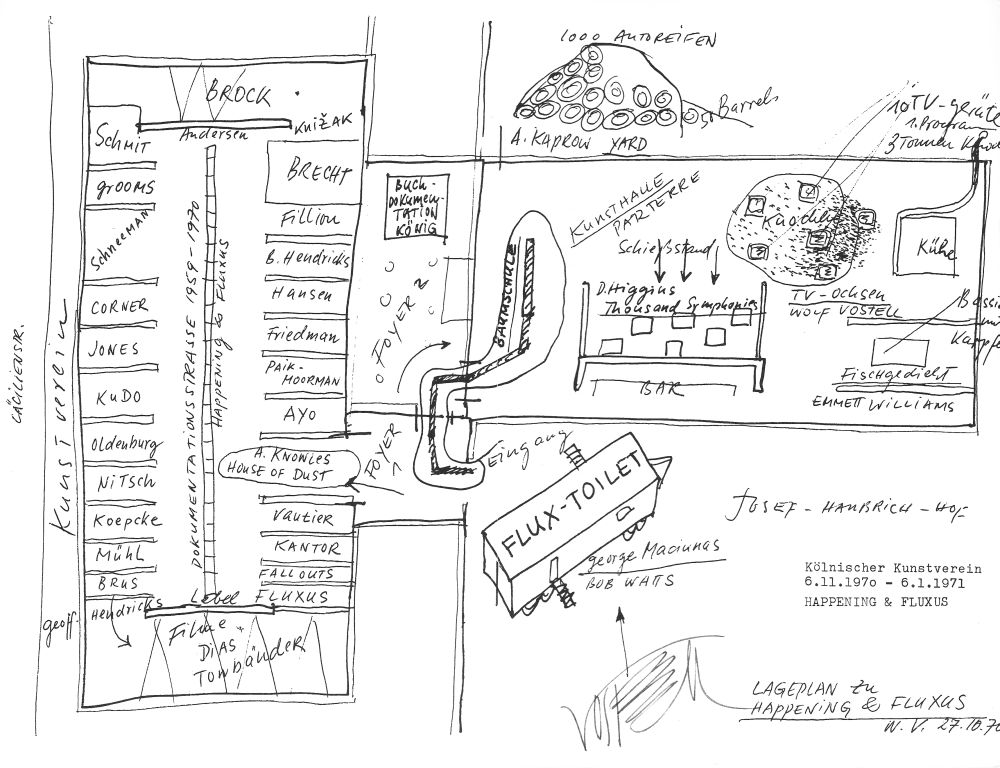 1000 AUTOREIFEN
BROCK
Andersen
KNIŽAK
SCHMIT
GROOMS
SCHNEEMAN
CORNER
JONES
KUDO
Oldenburg
NiTSCH
Koepcke
MÜHL
BRUS
Hendricks
geoff.
DOKUMENTATIONSSTRASSE 1959-1970
HAPPENING & FLUXUS
BRECHT
Fillion
B. Hendricks
Hansen
Friedman
PAIK-
MOORMAN
AYO
A. KNOWLES
HOUSE OF DUST
Vautier
KANTOR
FALLOUTS
FLUXUS
Lebel
Filme
DiAS
TONBÄNDER
Kunstverein
CÄCILIENSTR.
BUCH-
DOKUMEN-
TATION
KÖNIG
FOYER 2
FOYER 1
BAUMSCHULE
Eingang
A. KAPROW YARD
50 Barrels
KUNSTHALLE
PARTERRE
Schießstand
D. Higgins
Thousand Symphonies
BAR
10 TV-geräte
1. Program
3 Tonnen
Knochen
TV-OCHSEN
WOLF VOSTELL
Kühe
Fischgedicht
EMMETT WILLIAMS
FLUX-TOILET
george Maciunas
BOB WATTS
JOSEF-HAUBRICH-HOF
Kölnischer Kunstverein
6.11.1970 - 6.1.1971
HAPPENING & FLUXUS
LAGEPLAN ZU
HAPPENING & FLUXUS
W.V. 27.10.70